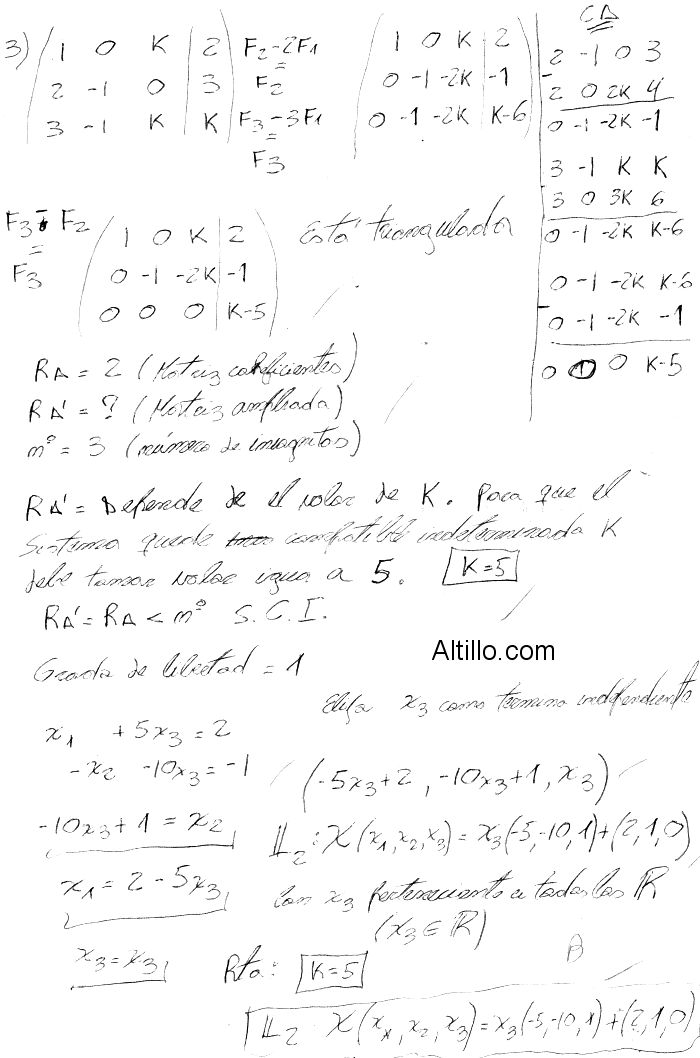 3) ( 1 0 K | 2 ) F2-2F1 = F2 ( 1 0 K | 2 )
( 2 -1 0 | 3 ) ( 0 -1 -2K | -1 )
( 3 -1 K | K ) F3-3F1 = F3 ( 0 -1 -2K | K-6 )
CA
2 -1 0 3
- 2 0 2K 4
0 -1 -2K -1
3 -1 K K
- 3 0 3K 6
0 -1 -2K K-6
0 -1 -2K K-6
- 0 -1 -2K -1
0 0 0 K-5
F3 - F2 = F3 ( 1 0 K | 2 ) Está triangulada
( 0 -1 -2K | -1 )
( 0 0 0 | K-5 )
RA = 2 (Matriz coeficientes)
RA' = ? (Matriz ampliada)
nº = 3 (número de incognitas)
RA' = Depende de el valor de K. Para que el
Sistema quede compatible indeterminada K
debe tomar valor igua a 5. K=5
RA' = RA < nº S.C.I.
Altillo.com
Grado de libertad = 1
Elija x3 como termino independiente
x1 + 5x3 = 2
-x2 -10x3 = -1
(-5x3+2, -10x3+1, x3)
-10x3 + 1 = x2
L2: X(x1,x2,x3) = x3(-5,-10,1)+(2,1,0)
x1 = 2 - 5x3
con x3 perteneciente a todos los R
(x3 ∈ R)
x3 = x3
B
Rta: K=5
L2 X(x1,x2,x3) = x3(-5,-10,1)+(2,1,0)